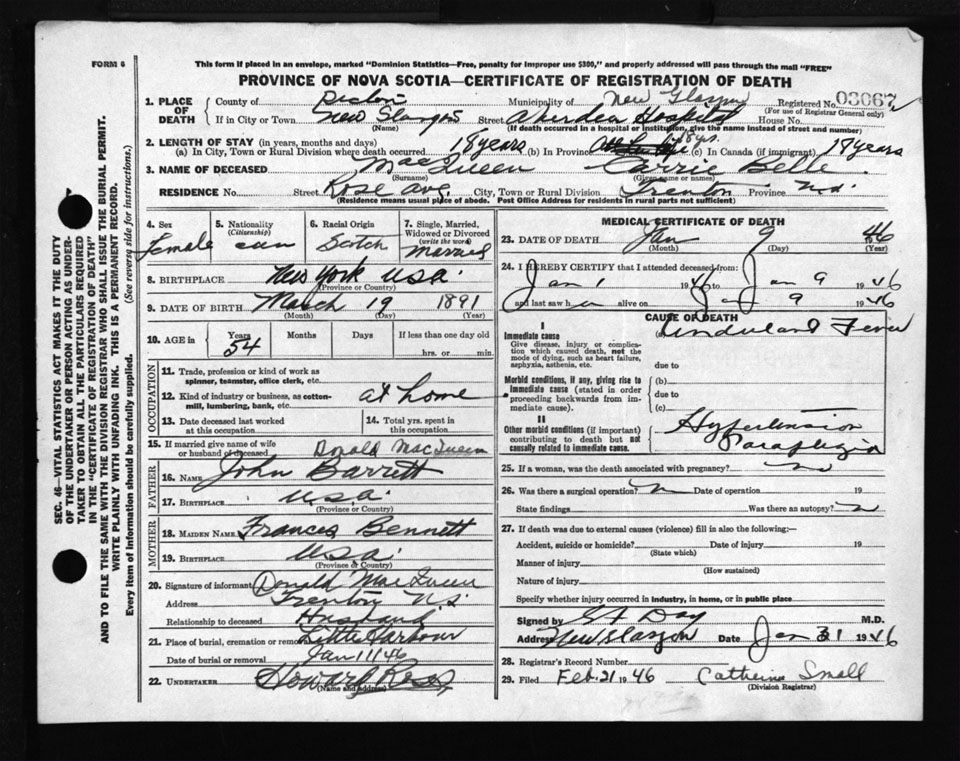 FORM 6
This form if placed in an envelope, marked "Dominion Statistics—Free, penalty for improper use $300," and properly addressed will pass through the mail "FREE"
PROVINCE OF NOVA SCOTIA—CERTIFICATE OF REGISTRATION OF DEATH
SEC. 46—VITAL STATISTICS ACT MAKES IT THE DUTY
OF THE UNDERTAKER OR PERSON ACTING AS UNDER-
TAKER TO OBTAIN ALL THE PARTICULARS REQUIRED
IN THE "CERTIFICATE OF REGISTRATION OF DEATH"
AND TO FILE THE SAME WITH THE DIVISION REGISTRAR WHO SHALL ISSUE THE BURIAL PERMIT.
WRITE PLAINLY WITH UNFADING INK. THIS IS A PERMANENT RECORD.
Every item of information should be carefully supplied. (See reverse side for instructions.)
1. PLACE OF DEATH County of Municipality of New Glasgow Registered No. 03067
(For use of Registrar General only)
If in City or Town New Glasgow Street Aberdeen Hospital House No.
(Name) (If death occurred in a hospital or institution, give the name instead of street and number)
2. LENGTH OF STAY (in years, months and days) 18 yrs.
(a) In City, Town or Rural Division where death occurred 18 years (b) In Province (c) In Canada (if immigrant) 18 years
3. NAME OF DECEASED MacQueen Carrie Belle
(Surname) (Given or names)
RESIDENCE No. Street Rose Ave. City, Town or Rural Division Trenton Province N.S.
(Residence means usual place of abode. Post Office Address for residents in rural parts not sufficient)
4. Sex 5. Nationality (Citizenship) 6. Racial Origin 7. Single, Married, Widowed or Divorced (write the word)
Female can Scotch Married
8. BIRTHPLACE New York U.S.A.
(Province or Country)
9. DATE OF BIRTH March 19 1891
(Month) (Day) (Year)
10. AGE in Years Months Days If less than one day old
54 hrs. or min.
OCCUPATION
11. Trade, profession or kind of work as
spinner, teamster, office clerk, etc.
12. Kind of industry or business, as cotton-
mill, lumbering, bank, etc. at home
13. Date deceased last worked 14. Total yrs. spent in
at this occupation this occupation
15. If married give name of wife
or husband of deceased Donald MacQueen
FATHER
16. NAME John Barrett
17. BIRTHPLACE U.S.A.
(Province or Country)
MOTHER
18. MAIDEN NAME Frances Bennett
19. BIRTHPLACE U.S.A.
(Province or Country)
20. Signature of informant Donald MacQueen
Address Trenton N.S.
Relationship to deceased Husband
21. Place of burial, cremation or removal Little Harbour
Date of burial or removal Jan 11 46
22. UNDERTAKER Howard Ross
(Name and address)
MEDICAL CERTIFICATE OF DEATH
23. DATE OF DEATH Jan 9 46
(Month) (Day)
24. I HEREBY CERTIFY that I attended deceased from:
Jan 1 1946 to Jan 9 1946
and last saw her alive on Jan 9 1946
CAUSE OF DEATH
I
Immediate cause (a) Undulant Fever
Give disease, injury or complica-
tion which caused death, not the
mode of dying, such as heart failure,
asphyxia, asthenia, etc. due to
Morbid conditions, if any, giving rise to (b)
immediate cause (stated in order due to
proceeding backwards from im- (c)
mediate cause).
II
Other morbid conditions (if important) Hypertension
contributing to death but not Paraplegia
causally related to immediate cause.
25. If a woman, was the death associated with pregnancy? no
26. Was there a surgical operation? Date of operation 19
State findings Was there an autopsy?
27. If death was due to external causes (violence) fill in also the following:—
Accident, suicide or homicide? Date of injury 19
(State which)
Manner of injury
(How sustained)
Nature of injury
Specify whether injury occurred in industry, in home, or in public place
Signed by Day M.D.
Address New Glasgow Date Jan 31 1946
28. Registrar's Record Number
29. Filed Feb. 21 1946 Catherine Small
(Division Registrar)